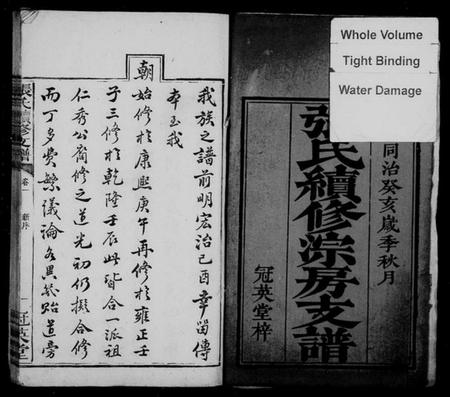 Whole Volume
Tight Binding
Water Damage
同治癸亥歲季秋月
張氏續修淙房支譜
冠英堂梓
我族之譜前明宏治己酉章甾傳
本玉我
朝始修於康熙庚午再修於雍正壬
子三修於乾隆壬辰此皆合一派祖
仁秀公裔修之道光初仍擬合修
而丁多費繁議論各異幾貽道旁
張氏續修支譜
卷
新序
一
冠英堂